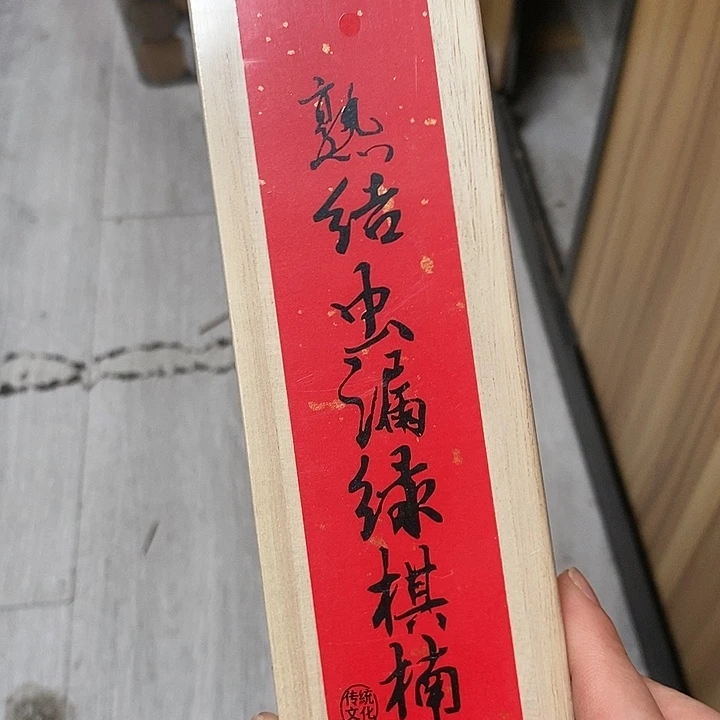 熟结虫漏绿棋楠
传统
文化